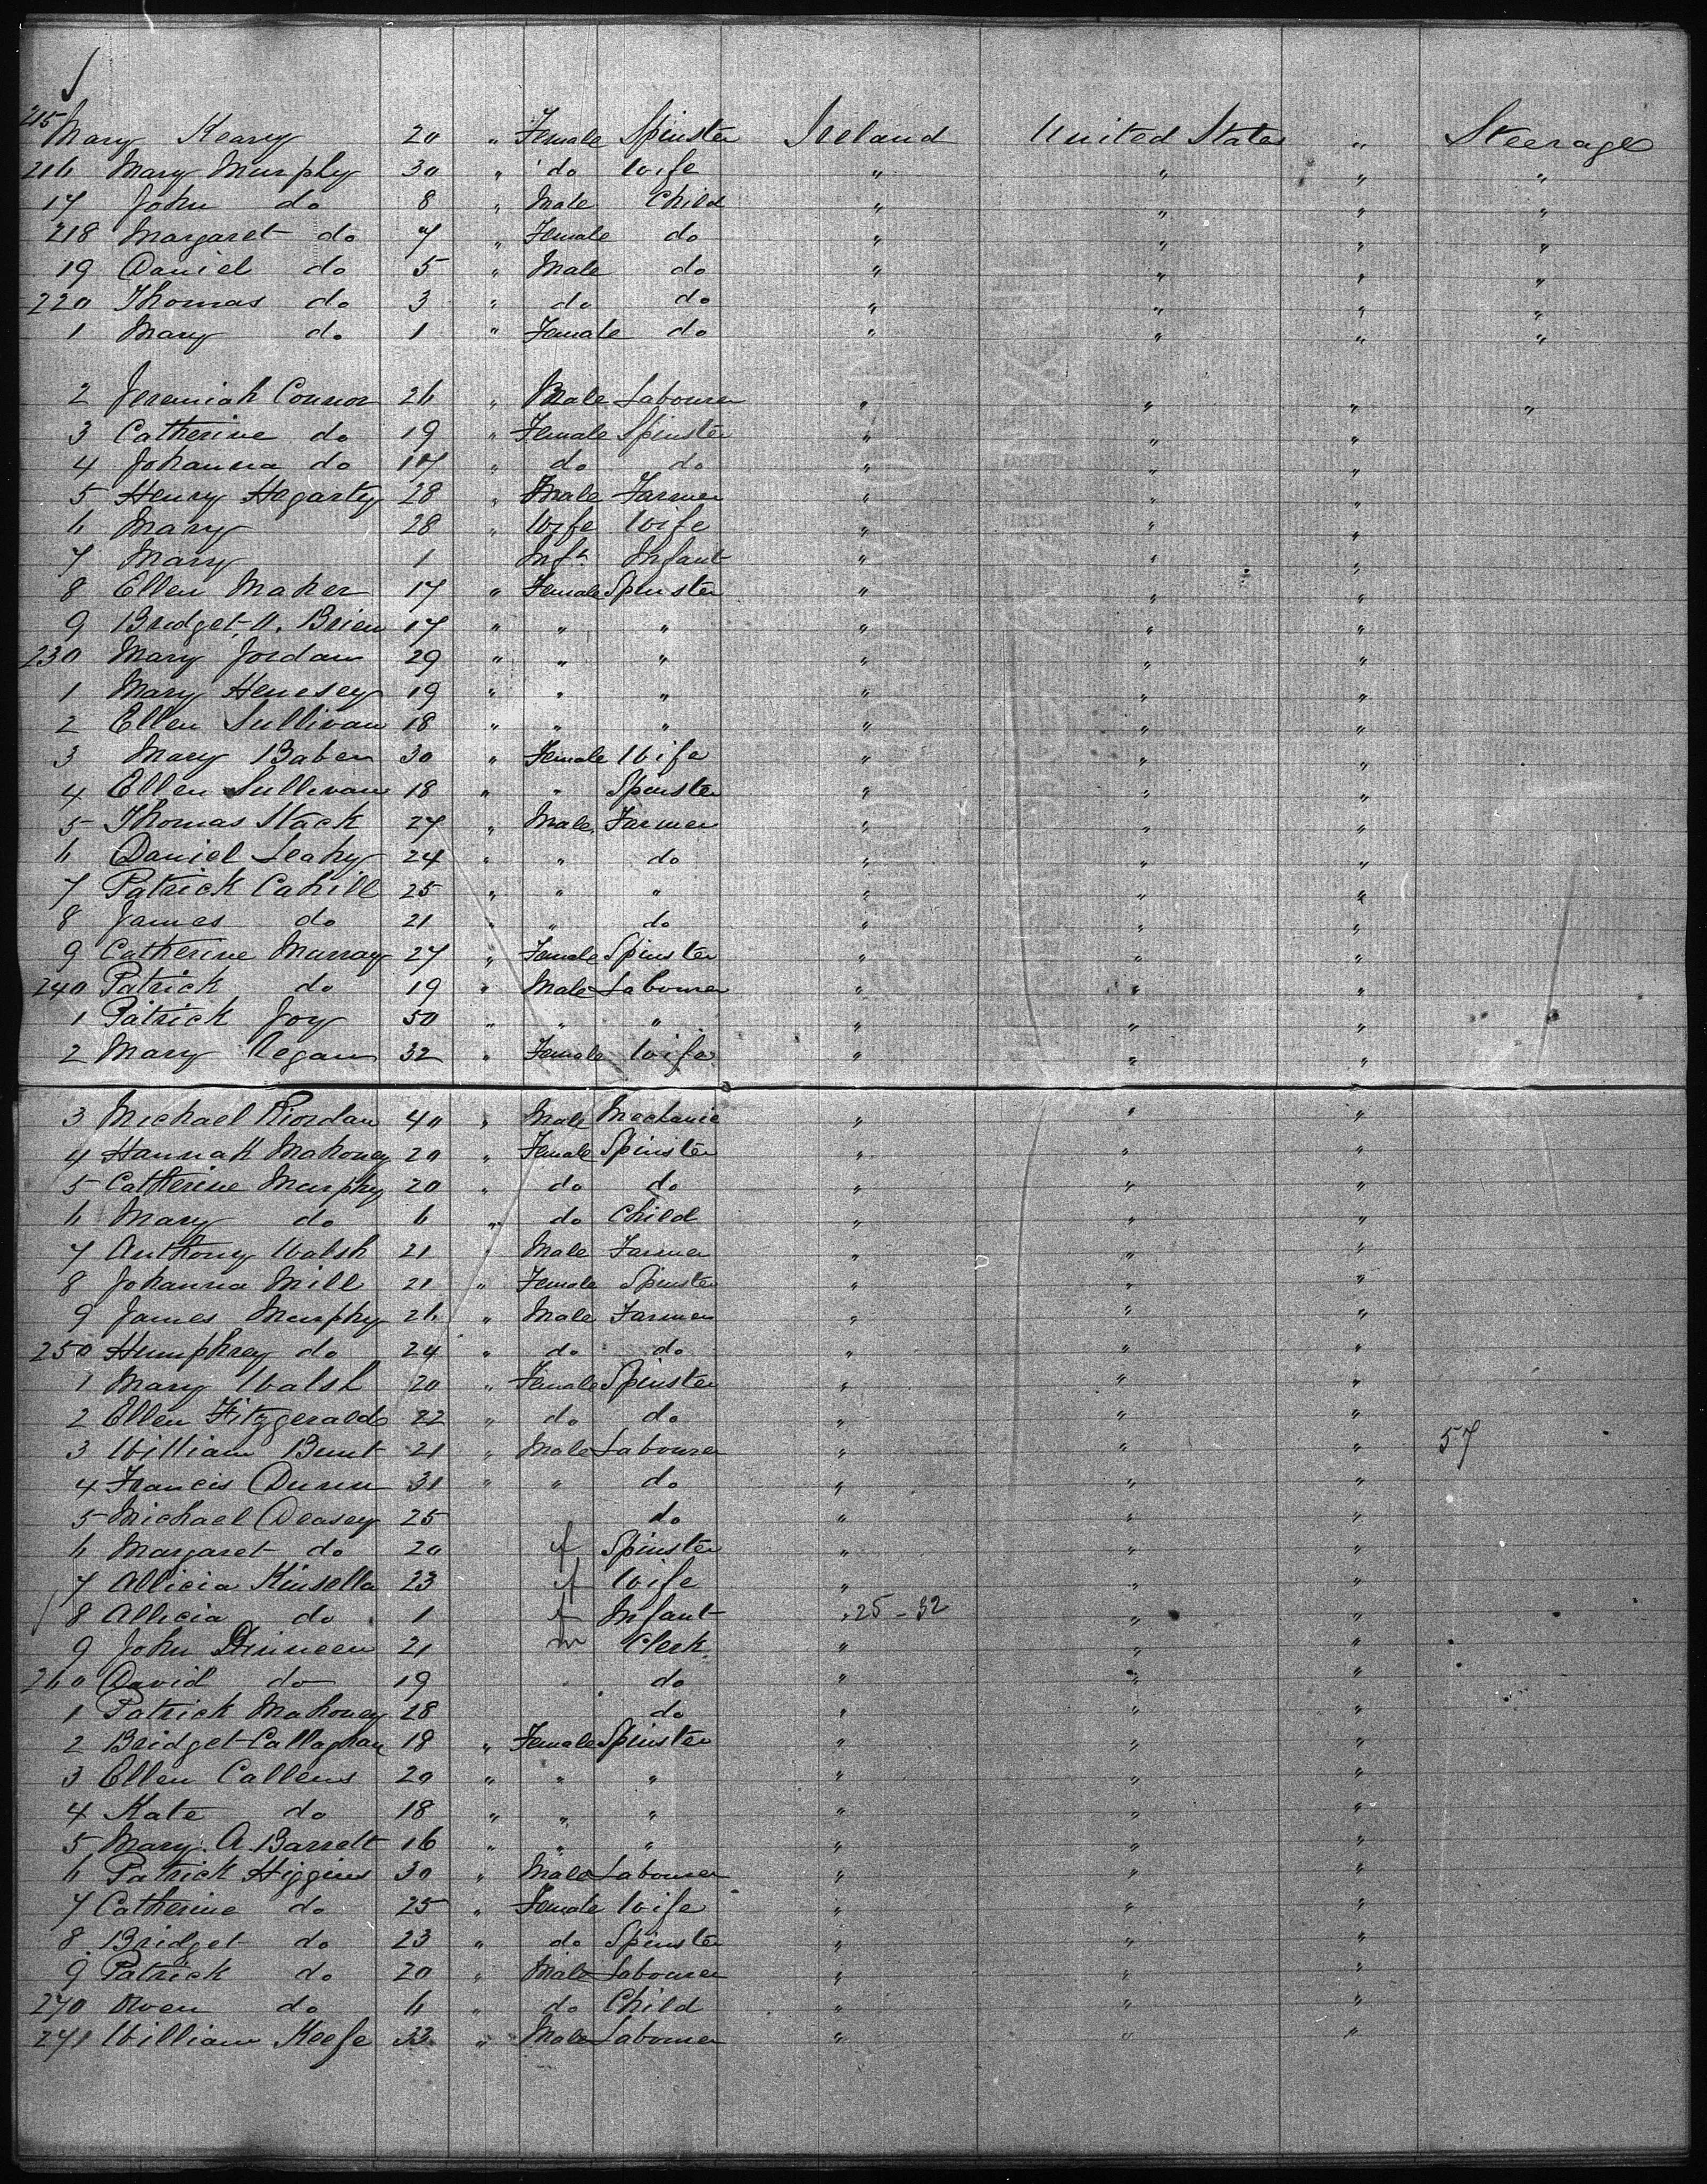 215 Mary Keary 20 " Female Spinster Ireland United States " Steerage
216 Mary Murphy 30 " do Wife " " " "
17 John do 8 " Male Child " " " "
218 Margaret do 7 " Female do " " " "
19 Daniel do 5 " Male do " " " "
220 Thomas do 3 " do do " " " "
1 Mary do 1 " Female do " " " "
2 Jeremiah Connor 26 " Male Labourer " " " "
3 Catherine do 19 " Female Spinster " " "
4 Johanna do 17 " do do " " "
5 Henry Hagarty 28 " Male Farmer " " "
6 Mary 28 " Wife Wife " " "
7 Mary 1 Inft Infant " " "
8 Ellen Maher 17 " Female Spinster " " "
9 Bridget O. Brien 17 " " " " " "
230 Mary Jordan 29 " " " " " "
1 Mary Henesey 19 " " " " " "
2 Ellen Sullivan 18 " " " " " "
3 Mary Baben 30 " Female Wife " " "
4 Ellen Sullivan 18 " " Spinster " " "
5 Thomas Stack 27 " Male Farmer " " "
6 Daniel Leahy 24 " " do " " "
7 Patrick Cahill 25 " " " " " "
8 James do 21 " " do " " "
9 Catherine Murray 27 " Female Spinster " " "
240 Patrick do 19 " Male Labourer " " "
1 Patrick Joy 50 " " " " " "
2 Mary Regan 32 " Female Wife " " "
3 Michael Riordan 40 " Male Mechanic " " "
4 Hannah Mahoney 20 " Female Spinster " " "
5 Catherine Murphy 20 " do do " " "
6 Mary do 6 " do Child " " "
7 Anthony Walsh 21 " Male Farmer " " "
8 Johanna Mill 21 " Female Spinster " " "
9 James Murphy 26 " Male Farmer " " "
250 Humphrey do 24 " do do " " "
1 Mary Walsh 20 " Female Spinster " " "
2 Ellen Fitzgerald 22 " do do " " "
3 William Bunt 21 " Male Labourer " " " 57
4 Francis Dunn 31 " " do " " "
5 Michael Deasey 25 do " " "
6 Margaret do 20 f Spinster " " "
7 Allicia Kinsella 23 f Wife " " "
8 Allicia do 1 f Infant " 25 - 32 " "
9 John Dinneen 21 m Clerk " " "
260 David do 19 do " " "
1 Patrick Mahoney 28 do " " "
2 Bridget Callaghan 18 " Female Spinster " " "
3 Ellen Callens 20 " " " " " "
4 Kate do 18 " " " " " "
5 Mary A. Barrett 16 " " " " " "
6 Patrick Higgins 30 " Male Labourer " " "
7 Catherine do 25 " Female Wife " " "
8 Bridget do 23 " do Spinster " " "
9 Patrick do 20 " Male Labourer " " "
270 Owen do 6 " do Child " " "
271 William Keefe 33 " Male Labourer " " "